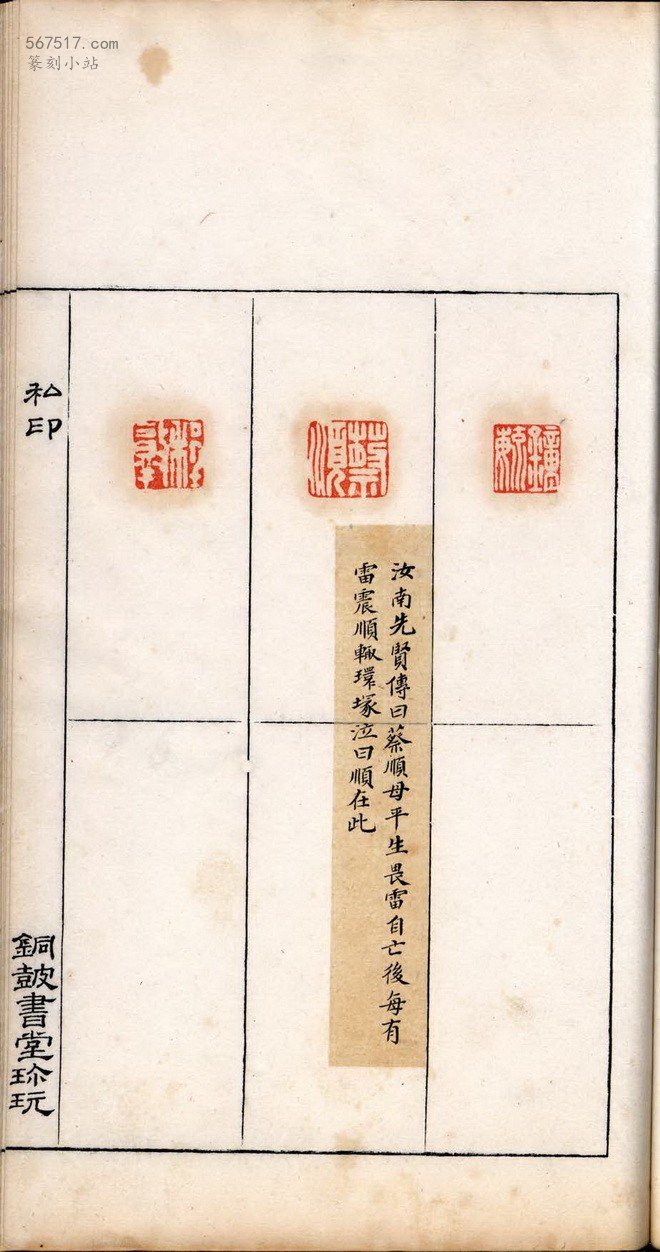 567517.com
篆刻小站
蔡順
汝南先賢傳曰蔡順母平生畏雷自亡後每有
雷震順輒環塚泣曰順在此
私印
銅鼓書堂珍玩